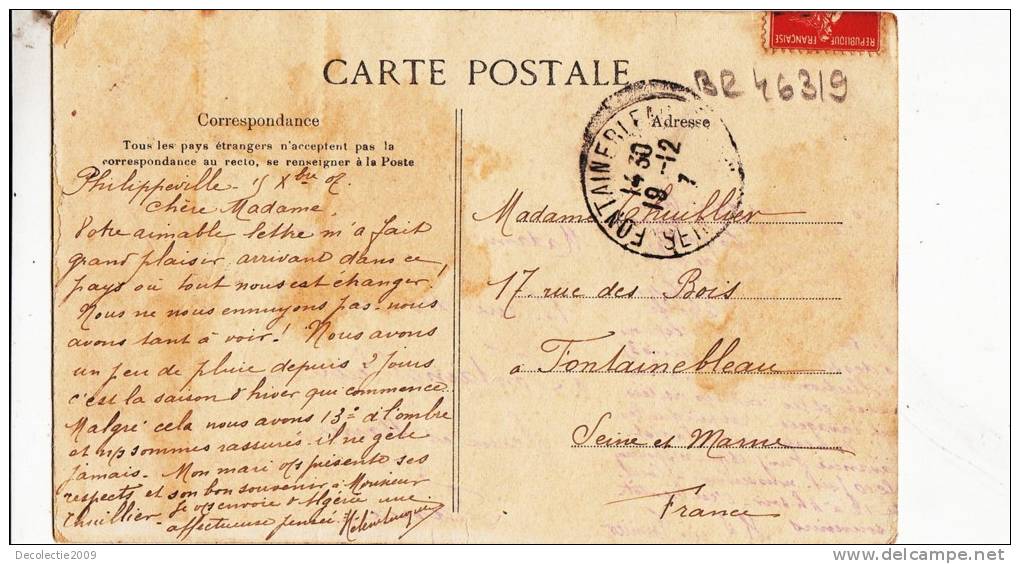 REPUBLIQUE FRANCAISE
CARTE POSTALE
BR 46319
Correspondance
Adresse
Tous les pays étrangers n'acceptent pas la
correspondance au recto, se renseigner à la Poste
FONTAINEBLEAU
14 30
19 -12
7
SEINE
Philippeville 15 Xbre 07
Chère Madame,
Votre aimable lettre m'a fait
grand plaisir arrivant dans ce
pays où tout nous est étranger!
Nous ne nous ennuyons pas nous
avons tant à voir! Nous avons
un peu de pluie depuis 2 jours
c'est la saison d'hiver qui commence.
Malgré cela nous avons 13° à l'ombre
et ns sommes rassurés il ne gèle
jamais. Mon mari vs présente ses
respects et son bon souvenir à Monsieur
Thuillier. Je vs envoie d'Algérie une
affectueuse pensée.
Madame Thuillier
17 rue des Bois
à Fontainebleau
Seine et Marne
France
Decolectie2009
www.delcampe.net